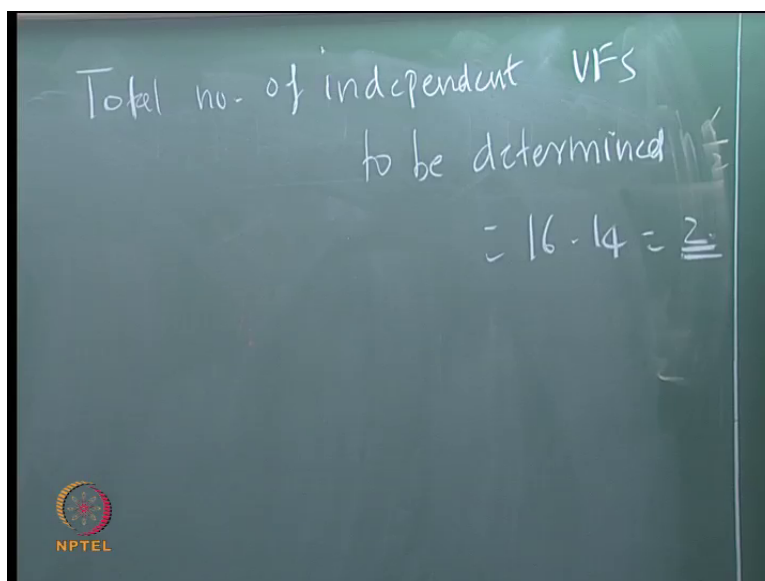 Total no. of independent VFs
to be determined
= 16 - 14 = 2.
NPTEL